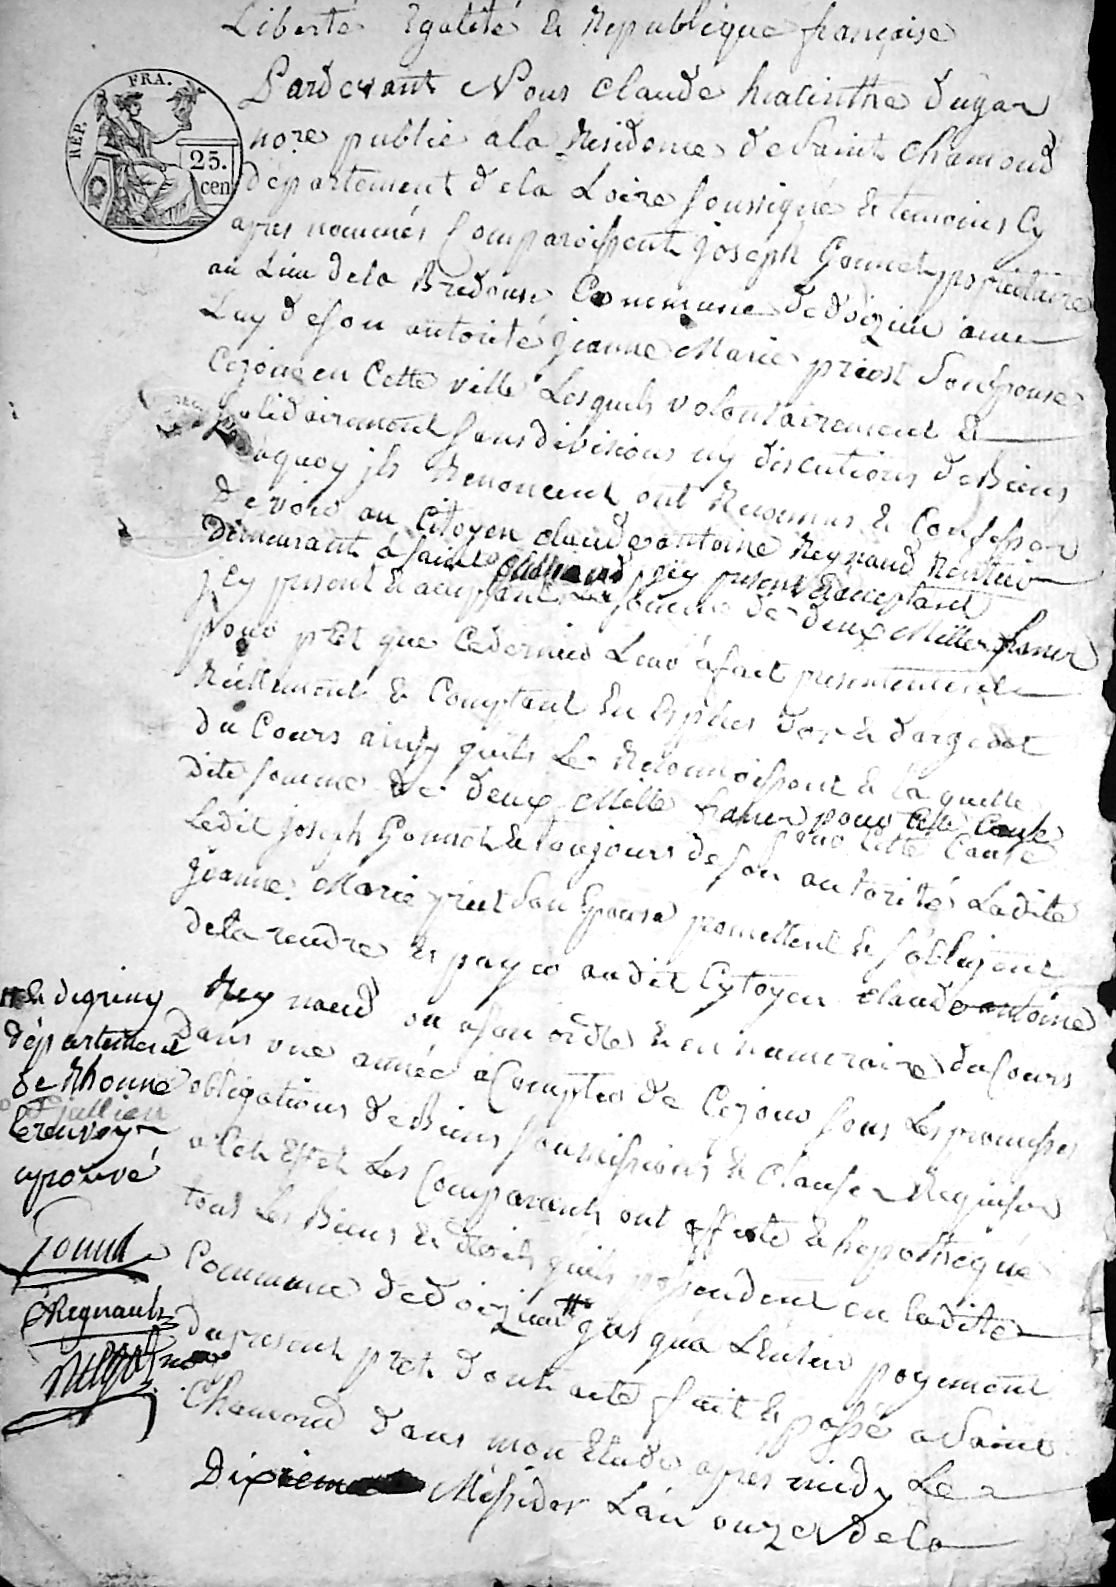 Liberté Egalité & Republique françoise
Pardevant Nous Claude hiacinthe Dugas
no.re public a la Residence de Saint Chamond
département de la Loire soussigné & temoins Cy
apres nommés Comparoissent joseph Gonnet propriétaire
au Lieu dela Bredouse Commune de doizieu avec
Luy de son autorité jeanne Marie priest Son Epouse
Cejour en Cette ville Lesquels volontairement &
solidairement sans divisions ny discutions de Biens
aquoy ils Renoncent ont Reconnus & Confessen
devoir au Citoyen claude antoine Reynaud Rentier
Demeurant à saint Chamond jcy present & acceptant
jcy present & acceptant La somme de deux Mille francs
pour prêt que Cedernier Leur a fait presentement
Réellement & Comptant En Espèces dor & dargent
du Cours ainsy quils Le Reconnoissent & la quelle
dite somme de deux Mille francs pour Cette Cause
pour Cette Cause
Ledit joseph Gonnet & toujours de son autorité Ladite
jeanne Marie priest Son Epouse promettent & sobligent
dela rendre & payer audit Cytoyen claude antoine
Reynaud ou a son ordre & en numeraire du Cours
dans une année a Compter de Cejour sous Les promesses
obligations de Biens soumissions & Clauses Requises
a Cet Effet Les Comparants ont affecté & hypothequé
tous Les Biens & droits quils possendent en ladite
Commune de doizieu # jus qua L'entier payement
du present prêt dont acte fait & passé a Saint
Chamond dans mon Etude apres midy Le
Dixieme Messidor L'an onze de la
# & de griny
département
de Rhonne
le renvoy
aprouvé
Gonnet
CReynault
REP. FRA.
25.
cen